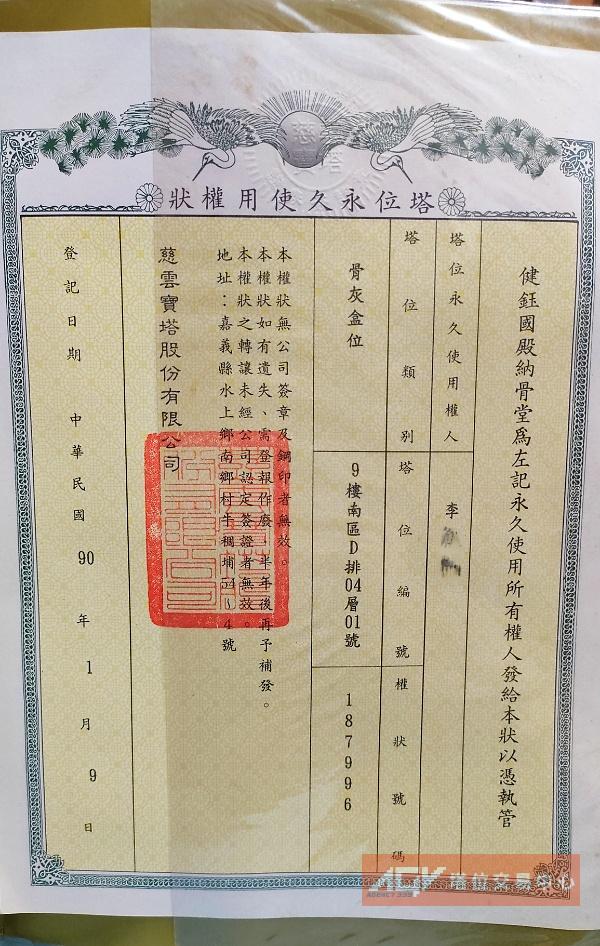 狀權用使久永位塔
健鈺國殿納骨堂為左記永久使用所有權人發給本狀以憑執管
塔位永久使用權人
李
塔位類别
塔位編號
權狀號碼
骨灰盒位
9樓南區D排04層01號
187996
本權狀無公司簽章及鋼印者無效。
本權狀如有遺失、需登報作廢，半年後再予補發。
本權狀之轉讓未經公司認定簽證者無效。
地址：嘉義縣水上鄉南鄉村牛稠埔54~4號
慈雲寶塔股份有限公司
登記日期 中華民國90年1月9日